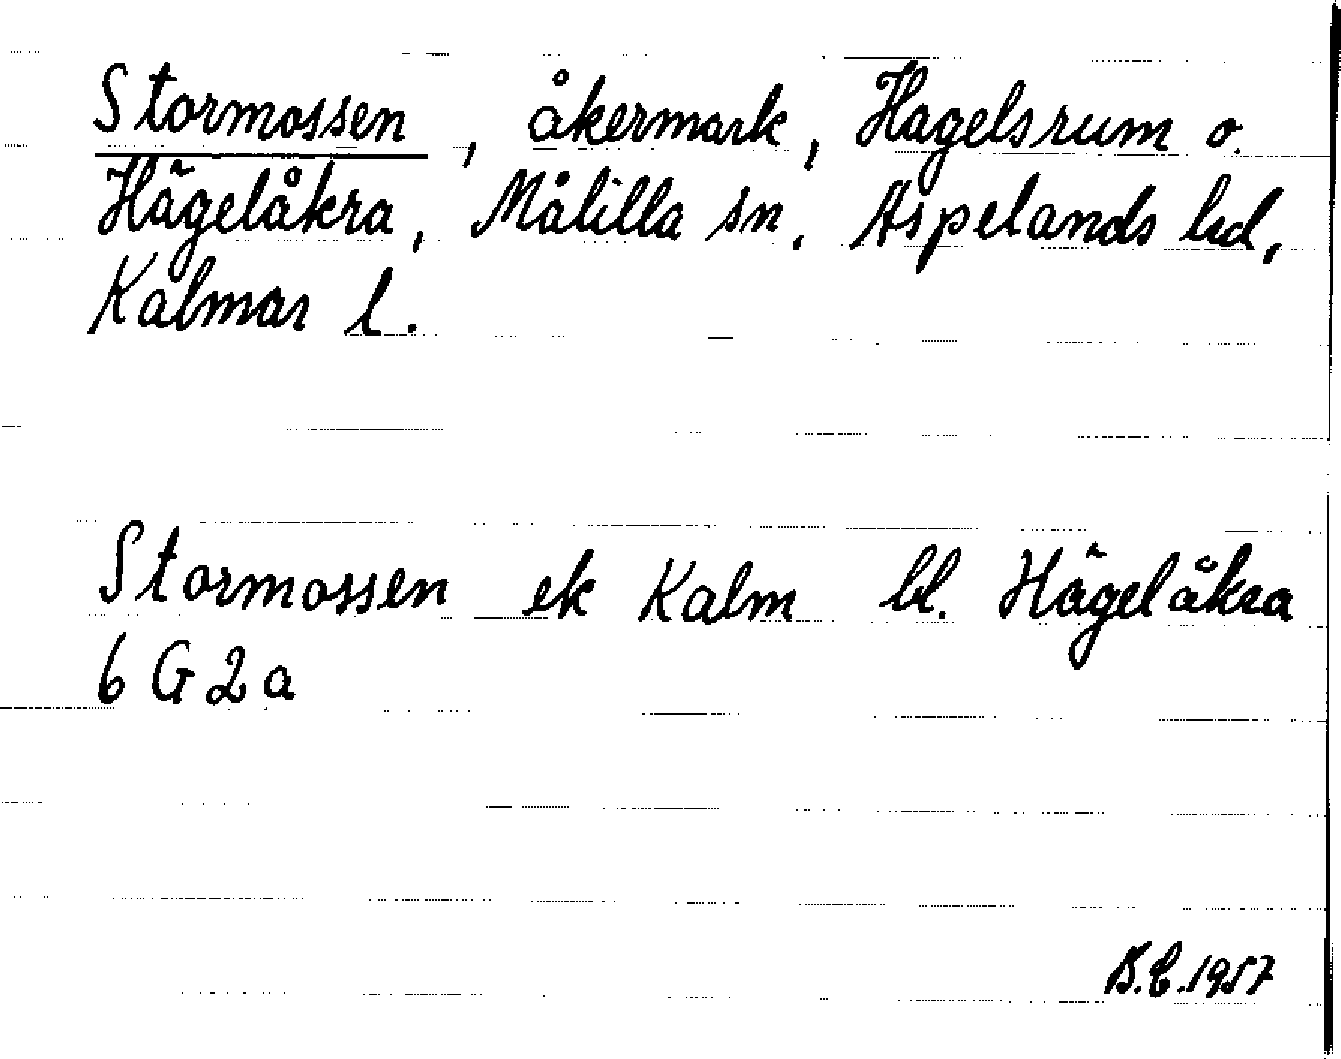 Stormossen, åkermark, Hagelsrum o.
Hägelåkra, Målilla sn, Aspelands hd,
Kalmar l.
Stormossen ek Kalm bl. Hägelåkra
6 G 2 a
B.C. 1957